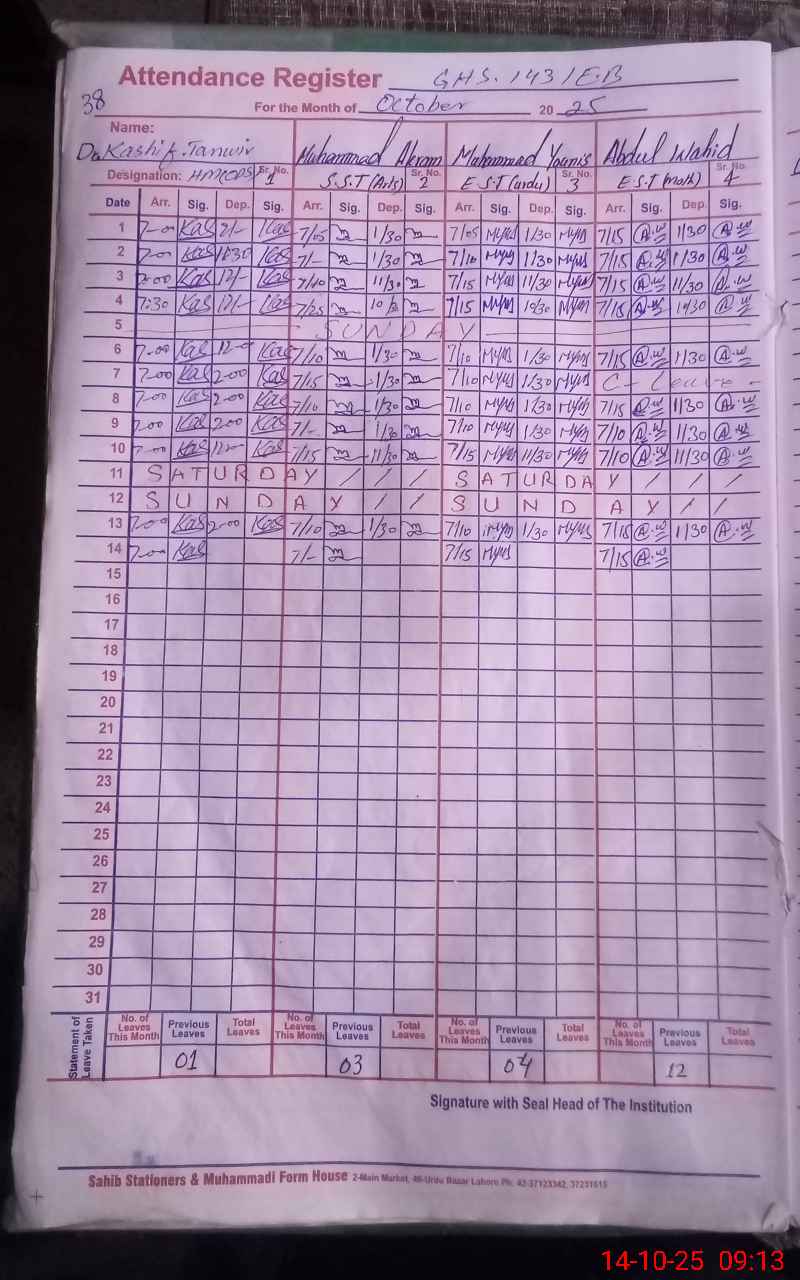 Attendance Register GHS. 143/E.B
38
For the Month of October 2025
Name:
Dr. Kashif. Tanwir Muhammad Akram Muhammad Younis Abdul Wahid
Designation: HM(OPS) Sr. No. 1 S.S.T (Arts) Sr. No. 2 E.S.T (urdu) Sr. No. 3 E.S.T (math) Sr. No. 4
Date Arr. Sig. Dep. Sig. Arr. Sig. Dep. Sig. Arr. Sig. Dep. Sig. Arr. Sig. Dep. Sig.
1 7-00 Kas 2/- Kas 7/05 1/30 7/05 Myns 1/30 Myns 7/15 A.w 1/30 A.w
2 7-00 Kas 11/30 Kas 7/- 1/30 7/10 Myns 1/30 Myns 7/15 A.w 1/30 A.w
3 7-00 Kas 12/- Kas 7/10 11/30 7/15 Myns 11/30 Myns 7/15 A.w 11/30 A.w
4 7:30 Kas 12/- Kas 7/25 7/15 Myns 10/30 Myns 7/15 A.w 10/30 A.w
5 SUNDAY
6 7-00 Kas 12-00 Kas 7/10 1/30 7/10 Myns 1/30 Myns 7/15 A.w 1/30 A.w
7 7-00 Kas 2-00 Kas 7/15 1/30 7/10 Myns 1/30 Myns C- Leave -
8 7-00 Kas 2-00 Kas 7/10 1/30 7/10 Myns 1/30 Myns 7/15 A.w 1/30 A.w
9 7-00 Kas 2-00 Kas 7/- 1/30 7/10 Myns 1/30 Myns 7/10 A.w 1/30 A.w
10 7-00 Kas 12-00 Kas 7/15 11/30 7/15 Myns 11/30 Myns 7/10 A.w 11/30 A.w
11 SATURDAY / / / SATURDAY / / /
12 SUNDAY / / SUNDAY / /
13 7-00 Kas 2-00 Kas 7/10 1/30 7/10 Myns 1/30 Myns 7/15 A.w 1/30 A.w
14 7-00 Kas 7/- 7/15 Myns 7/15 A.w
15
16
17
18
19
20
21
22
23
24
25
26
27
28
29
30
31
Statement of Leave Taken
No. of Leaves This Month Previous Leaves Total Leaves No. of Leaves This Month Previous Leaves Total Leaves No. of Leaves This Month Previous Leaves Total Leaves No. of Leaves This Month Previous Leaves Total Leaves
01 03 04 12
Signature with Seal Head of The Institution
Sahib Stationers & Muhammadi Form House 2-Main Market, 46-Urdu Bazar Lahore Ph: 42-37123342, 37231615
14-10-25 09:13